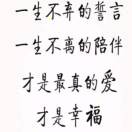 一生不弃的誓言
一生不离的陪伴
才是最真的爱
才是幸福